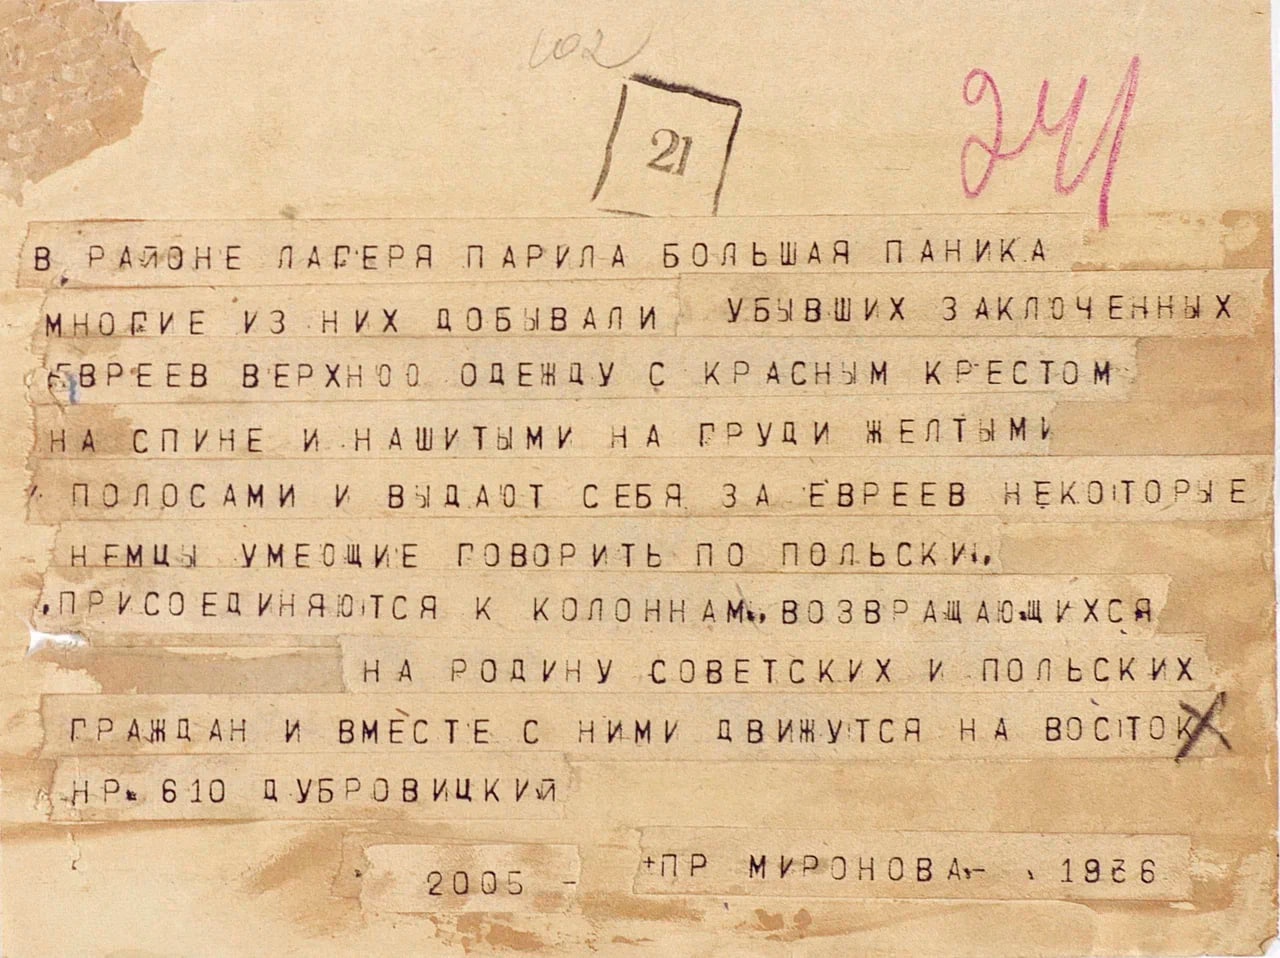 102
21
241
В РАЙОНЕ ЛАГЕРЯ ПАРИЛА БОЛЬШАЯ ПАНИКА
МНОГИЕ ИЗ НИХ ДОБЫВАЛИ УБЫВШИХ ЗАКЛЮЧЕННЫХ
ЕВРЕЕВ ВЕРХНЮЮ ОДЕЖДУ С КРАСНЫМ КРЕСТОМ
НА СПИНЕ И НАШИТЫМИ НА ГРУДИ ЖЕЛТЫМИ
ПОЛОСАМИ И ВЫДАЮТ СЕБЯ ЗА ЕВРЕЕВ НЕКОТОРЫЕ
НЕМЦЫ УМЕЮЩИЕ ГОВОРИТЬ ПО ПОЛЬСКИ.,
.ПРИСОЕДИНЯЮТСЯ К КОЛОННАМ., ВОЗВРАЩАЮЩИХСЯ
НА РОДИНУ СОВЕТСКИХ И ПОЛЬСКИХ
ГРАЖДАН И ВМЕСТЕ С НИМИ ДВИЖУТСЯ НА ВОСТОК
НР. 610 ДУБРОВИЦКИЙ
2005 - +ПР МИРОНОВА-